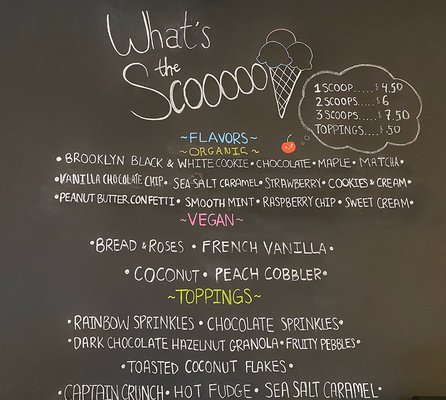 What's
the
Scooooo
1 SCOOP.....$4.50
2 SCOOPS....$6
3 SCOOPS....$7.50
TOPPINGS....$.50
~FLAVORS~
~ORGANIC~
•BROOKLYN BLACK & WHITE COOKIE•CHOCOLATE•MAPLE•MATCHA•
•VANILLA CHOCOLATE CHIP• SEA SALT CARAMEL•STRAWBERRY•COOKIES & CREAM•
•PEANUT BUTTER CONFETTI• SMOOTH MINT•RASPBERRY CHIP•SWEET CREAM•
~VEGAN~
•BREAD & ROSES•FRENCH VANILLA•
•COCONUT•PEACH COBBLER•
~TOPPINGS~
•RAINBOW SPRINKLES•CHOCOLATE SPRINKLES•
•DARK CHOCOLATE HAZELNUT GRANOLA•FRUITY PEBBLES•
•TOASTED COCONUT FLAKES•
•CAPTAIN CRUNCH•HOT FUDGE•SEA SALT CARAMEL•